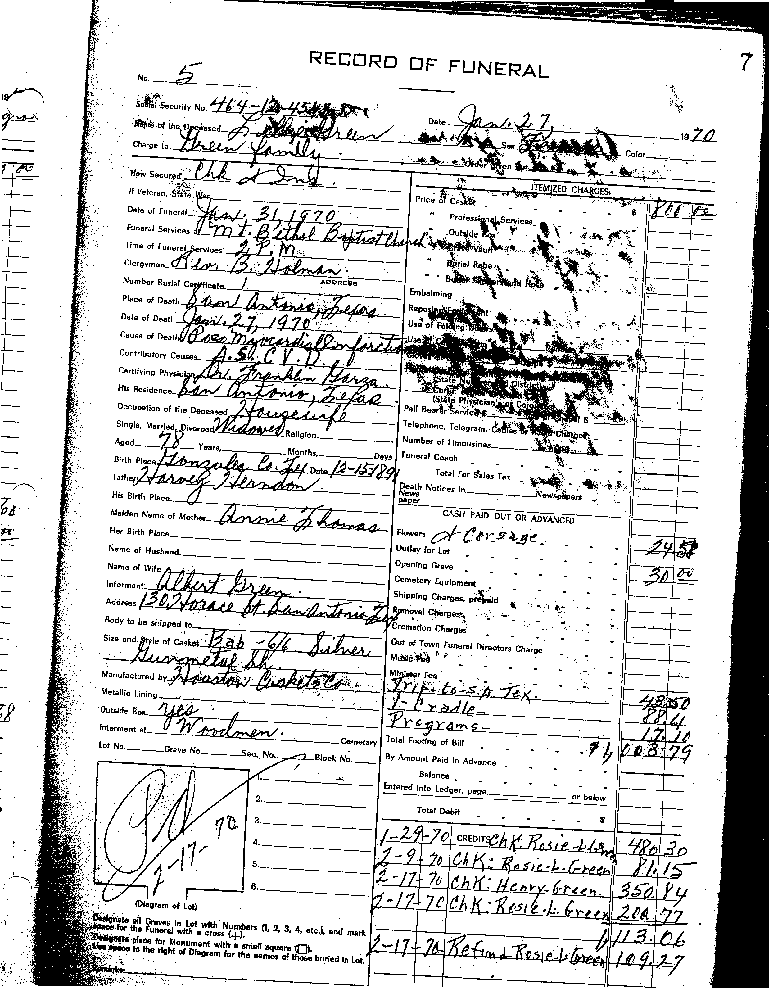 7
RECORD OF FUNERAL
No. 5
Social Security No. 464-12-
Date Jan. 27, 1970
Name of the Deceased Green
Sex Color
Charge to Green family
How Secured Chk & Ins.
If Veteran, State War
Date of Funeral Jan. 31, 1970
Funeral Services at Mt. Bethel Baptist Church
Time of Funeral Services 2 P.M.
Clergyman Rev B. Holman
ADDRESS
Number Burial Certificate
Place of Death San Antonio, Texas
Date of Death Jan. 27, 1970
Cause of Death Myocardial Infarction
Contributory Causes A.S.C.V.D
Certifying Physician Dr. Franklin Garza
His Residence San Antonio, Texas
Occupation of the Deceased Housewife
Single, Married, Divorced Widowed Religion
Aged 78 Years, Months, Days
Birth Place Gonzales Co. Tex Date 12-15-1891
Father Harvey Herndon
His Birth Place
Maiden Name of Mother Annie Thomas
Her Birth Place
Name of Husband
Name of Wife
Informant Albert Green
Address 130 Horace St San Antonio Tex
Body to be shipped to
Size and Style of Casket 6/6 Silver
Gunmetal Sh.
Manufactured by Houston Casket Co
Metallic Lining
Outside Box yes
Interment at Woodmen. Cemetery
Lot No. Grave No. Sec. No. Block No.
Pd
2-17-70
1.
2.
3.
4.
5.
6.
(Diagram of Lot)
Designate all Graves in Lot with Numbers (1, 2, 3, 4, etc.), and mark
space for the Funeral with a cross (+).
Designate place for Monument with a small square (□).
Use space to the right of Diagram for the names of those buried in Lot.
Remarks
ITEMIZED CHARGES
Price of Casket $ 800 00
" Professional Services
" Outside
" Burial Robe
Embalming
Use of
Pall Bearer Service
Telephone, Telegram,
Number of Limousines
Funeral Coach
Total For Sales Tax
Death Notices in Newspapers
News
paper
CASH PAID OUT OR ADVANCED
Flowers & Corsage 24
Outlay for Lot
Opening Grave 30 00
Cemetery Equipment
Shipping Charges, prepaid
Removal Charges
Cremation Charges
Out of Town Funeral Directors Charge
Music Fee
Minister Fee
Trip-to-S.A. Tex. 48.50
1-Cradle 88.61
Programs 17.10
Total Footing of Bill $1,003.79
By Amount Paid in Advance
Balance
Entered into Ledger, page or below
Total Debit $
1-29-70 CREDITS Chk Rosie L. 480 30
2-9-70 Chk: Rosie-L. Green 81.15
2-17-70 Chk: Henry-Green 350 84
2-17-70 Chk: Rosie-L. Green 200.77
1,113.06
2-17-70 Refund Rosie-L. Green 109.27